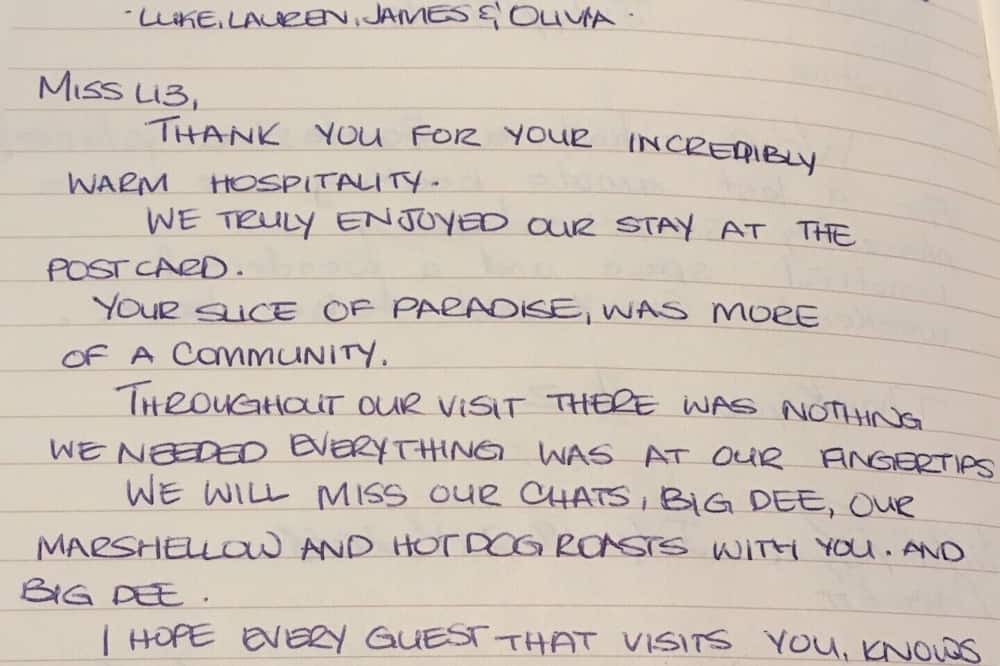 - LUKE, LAUREN, JAMES & OLIVIA -
MISS LIB,
THANK YOU FOR YOUR INCREDIBLY
WARM HOSPITALITY.
WE TRULY ENJOYED OUR STAY AT THE
POSTCARD.
YOUR SLICE OF PARADISE, WAS MORE
OF A COMMUNITY.
THROUGHOUT OUR VISIT THERE WAS NOTHING
WE NEEDED EVERYTHING WAS AT OUR FINGERTIPS
WE WILL MISS OUR CHATS, BIG DEE, OUR
MARSHELLOW AND HOTDOG ROASTS WITH YOU. AND
BIG DEE.
I HOPE EVERY GUEST THAT VISITS YOU, KNOWS